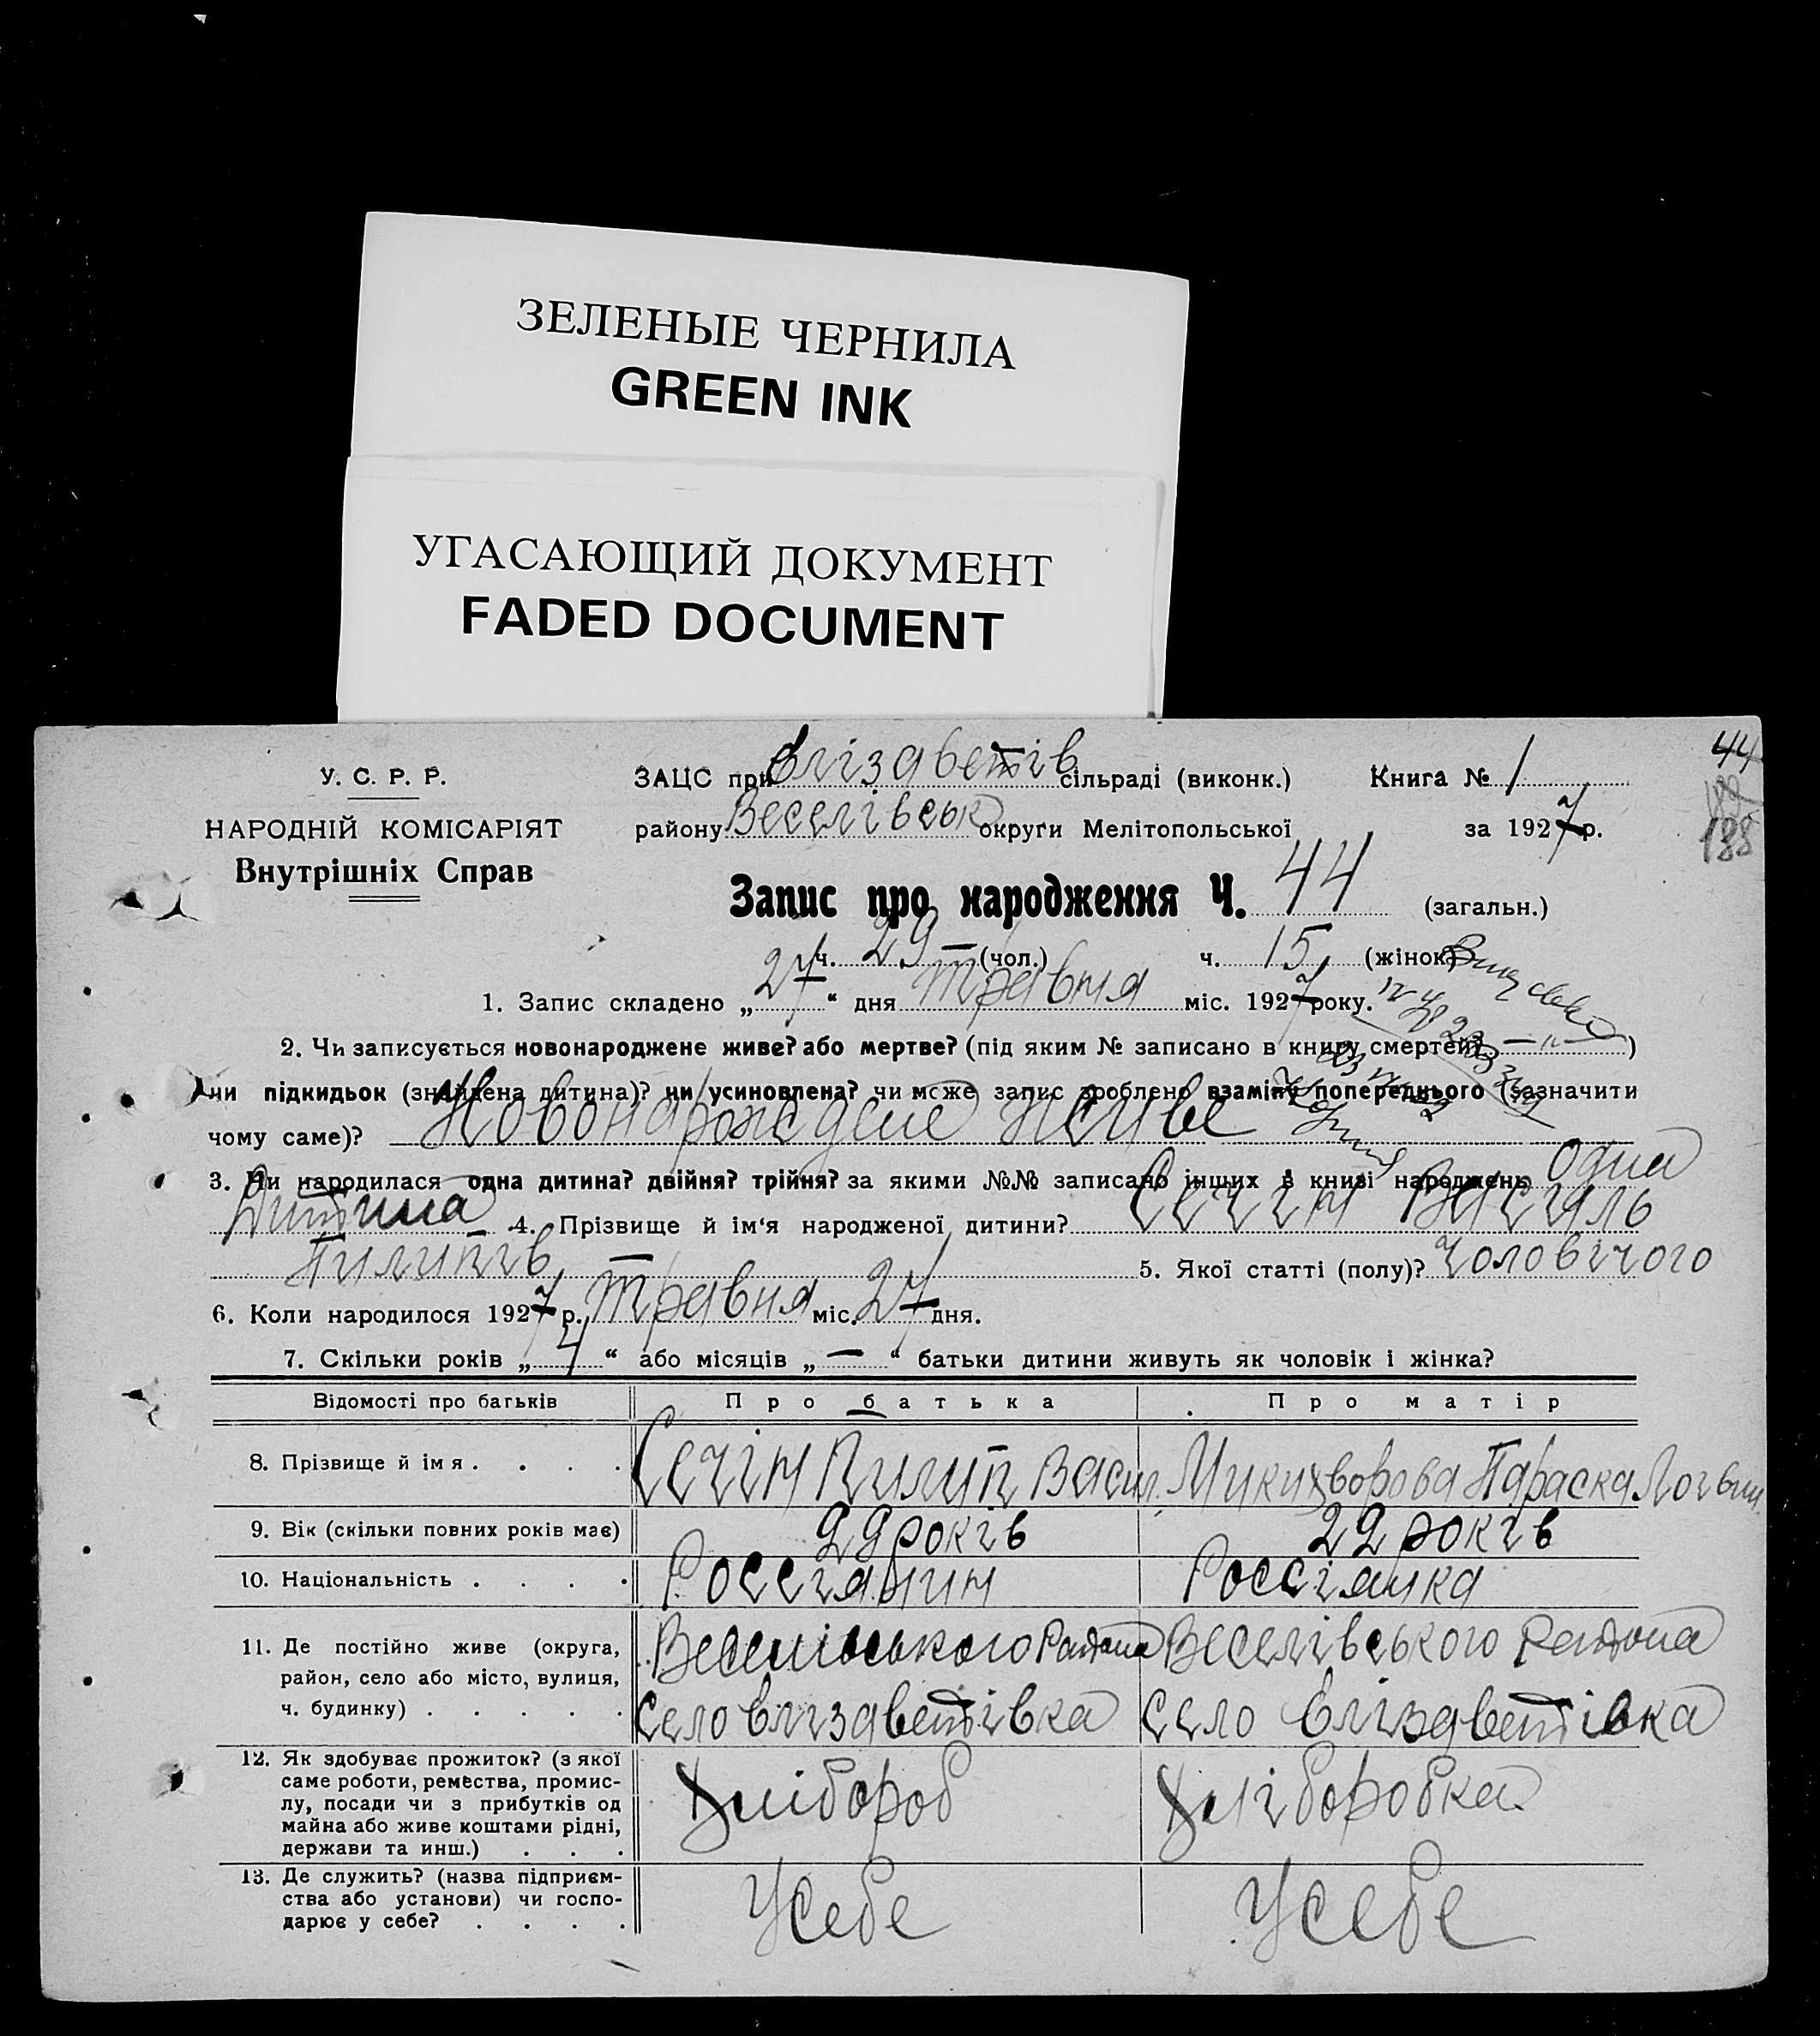 ЗЕЛЕНЫЕ ЧЕРНИЛА
GREEN INK
УГАСАЮЩИЙ ДОКУМЕНТ
FADED DOCUMENT
44
188
У. С. Р. Р.
НАРОДНІЙ КОМІСАРІЯТ
Внутрішніх Справ
ЗАЦС при Єлізаветів сільраді (виконк.) Книга № 1
району Веселівськ округи Мелітопольської за 1927 р.
Запис про народження Ч. 44 (загальн.)
ч. 29 — (чол.) ч. 15 (жінок)
1. Запис складено „27“ дня травня міс. 1927 року.
2. Чи записується новонароджене живе? або мертве? (під яким № записано в книгу смертей) — „ — )
чи підкидьок (знайдена дитина)? чи усиновлена? чи може запис зроблено взаміну попереднього (зазначити
чому саме)? Новонарожедене живе
3. Чи народилася одна дитина? двійня? трійня? за якими №№ записано інших в книзі народжень Одна
Дитина 4. Прізвище й ім‘я народженої дитини? Сечін Василь
Пилипів 5. Якої статті (полу)? Чоловічого
6. Коли народилося 1927 р. травня міс. 27 дня.
7. Скільки років „4“ або місяців „—“ батьки дитини живуть як чоловік і жінка?
Відомості про батьків Про батька Про матір
8. Прізвище й імя . . . . Сечін Пилип Васил. Микихворова Параска Логвин
9. Вік (скільки повних років має) 29 років 22 років
10. Національність . . . . Россіянин Россіянка
11. Де постійно живе (округа, Веселівського Района Веселівського Района
район, село або місто, вулиця,
ч. будинку) . . . . . Село Єлізаветівка Село Єлізаветівка
12. Як здобуває прожиток? (з якої
саме роботи, ремества, промис-
лу, посади чи з прибутків од Хлібороб Хліборобка
майна або живе коштами рідні,
держави та инш.) . . .
13. Де служить? (назва підприєм-
ства або установи) чи госпо- Усебе Усебе
дарює у себе? . . . .